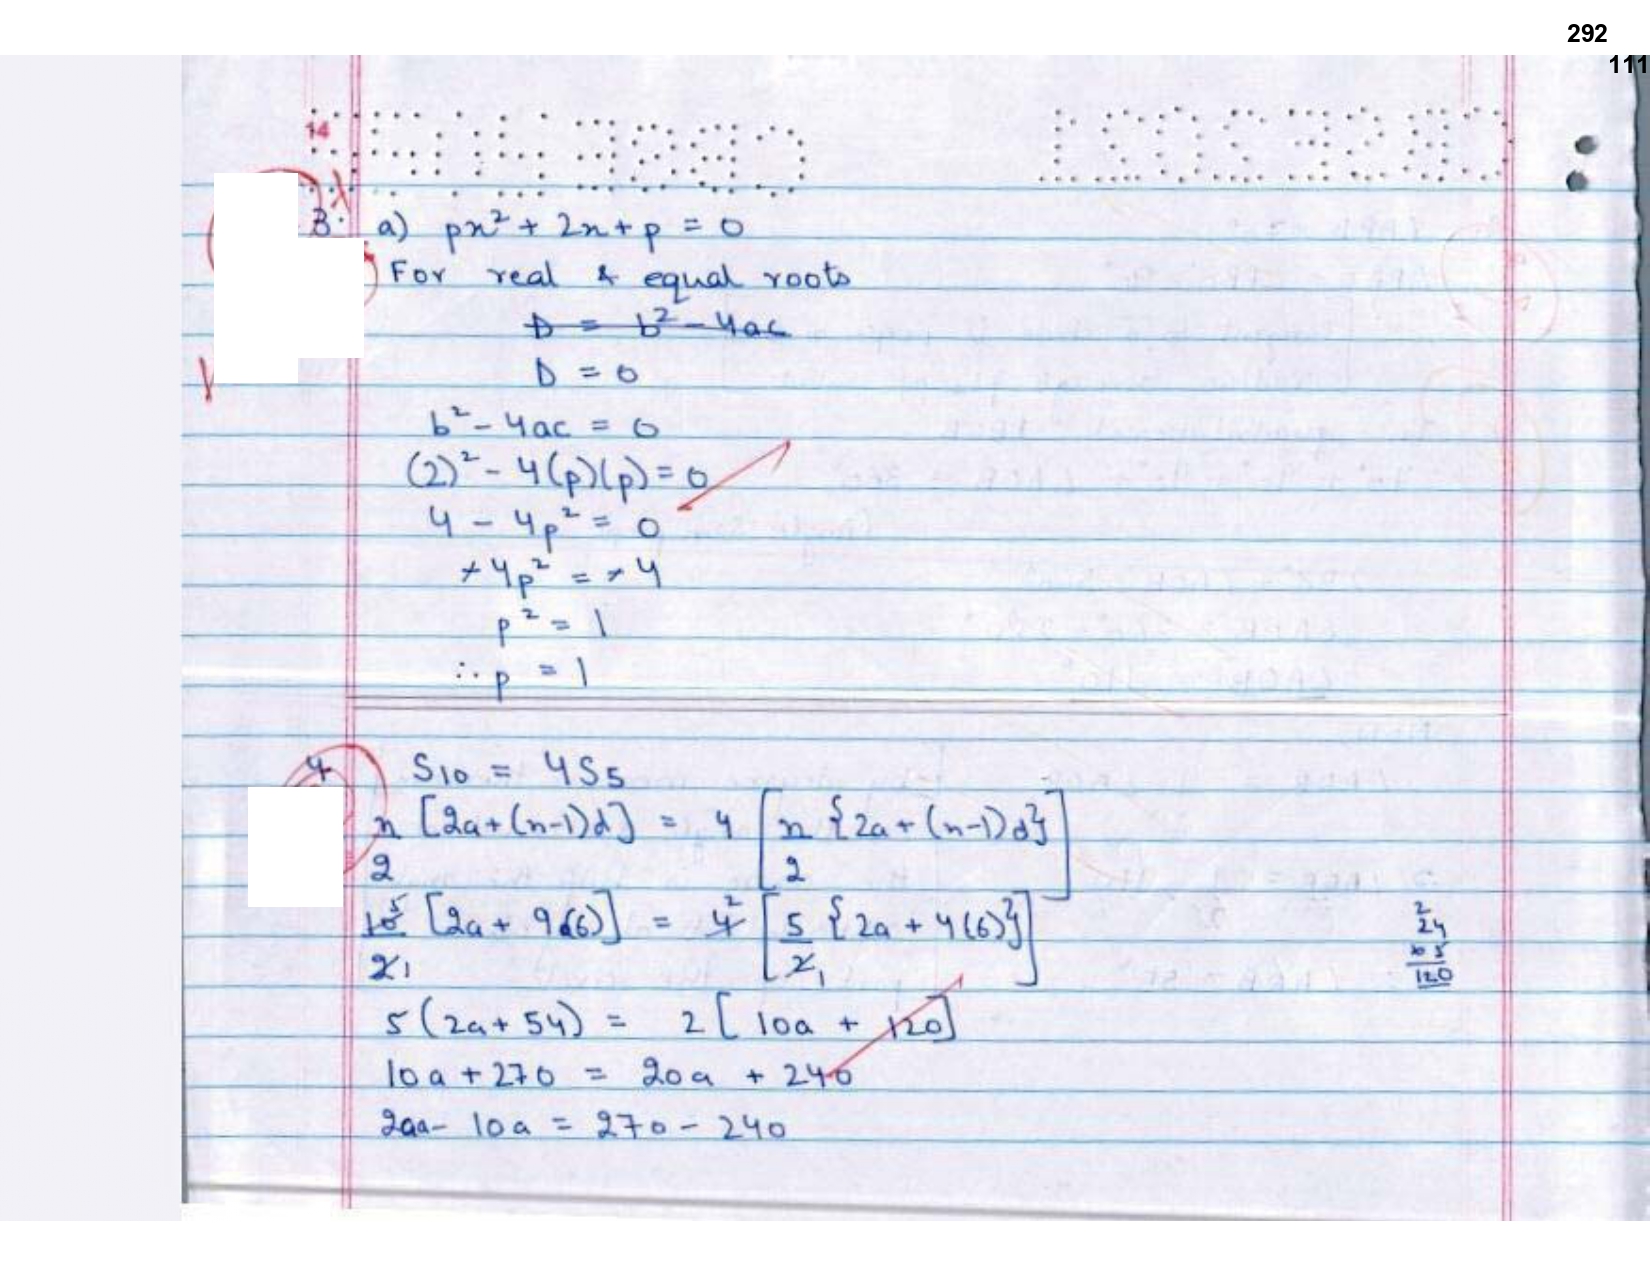 292
111
14
3. a) px² + 2x + p = 0
For real & equal roots
D = b² - 4ac
D = 0
b² - 4ac = 0
(2)² - 4(p)(p) = 0
4 - 4p² = 0
-4p² = -4
p² = 1
∴ p = 1
4 S10 = 4S5
n/2 [2a + (n-1)d] = 4 [n/2 {2a + (n-1)d}]
10/2 [2a + 9(6)] = 4 [5/2 {2a + 4(6)}]
5 (2a + 54) = 2 [10a + 120]
10a + 270 = 20a + 240
20a - 10a = 270 - 240
2
24
120